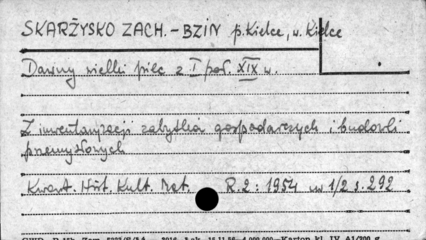 SKARŻYSKO ZACH. - BZIN p. Kielce, w. Kielce
Dawny wielki piec z I poł. XIX w.
Z inwentaryzacji zabytków gospodarczych i budowli
przemysłowych
Kwart. Hist. Kult. Mat. R. 2: 1954 nr 1/2 s. 292